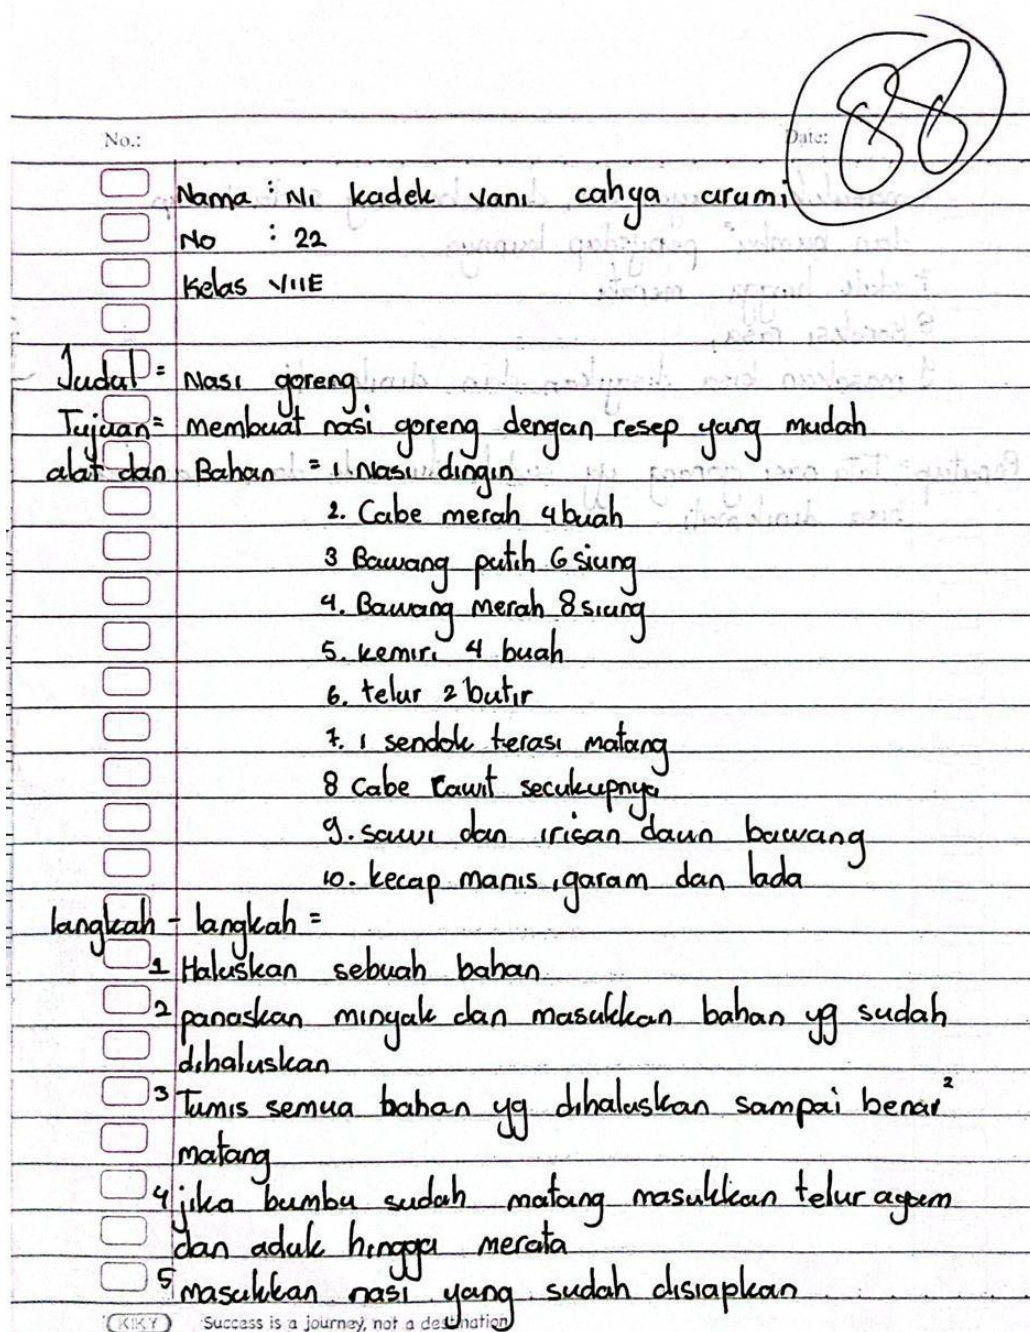 88
No.: Date:
Nama : Ni kadek vani cahya arumi
No : 22
Kelas VIIE
Judul = Nasi goreng
Tujuan = membuat nasi goreng dengan resep yang mudah
alat dan Bahan = 1. Nasi dingin
2. Cabe merah 4 buah
3 Bawang putih 6 siung
4. Bawang merah 8 siung
5. kemiri 4 buah
6. telur 2 butir
7. 1 sendok terasi matang
8 Cabe rawit secukupnya
9. sawi dan irisan daun bawang
10. kecap manis, garam dan lada
langkah - langkah =
1 Haluskan sebuah bahan
2 panaskan minyak dan masukkan bahan yg sudah
dihaluskan
3 Tumis semua bahan yg dihaluskan sampai benar²
matang
4 jika bumbu sudah matang masukkan telur ayam
dan aduk hingga merata
5 masukkan nasi yang sudah disiapkan
KIKY Success is a journey, not a destination